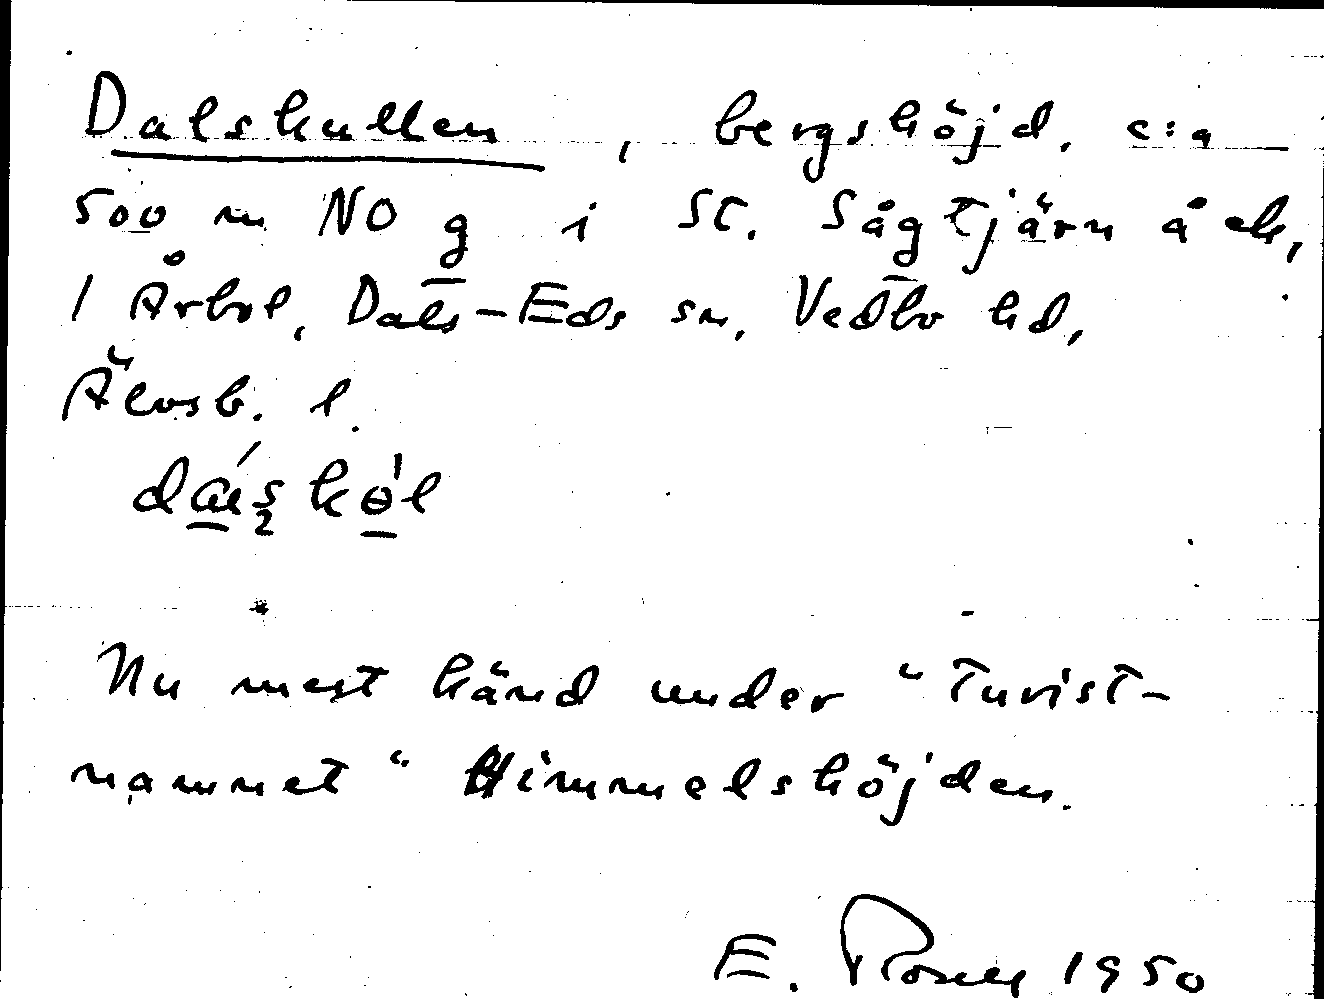 Dalskullen, bergshöjd, c:a
500 m NO g i St. Sågtjärn å ek,
1 Årbol, Dals-Eds sn, Vedbo hd,
Älvsb. l.
Nu mest känd under "turist-
namnet" Himmelshöjden.
E. Rosell 1950